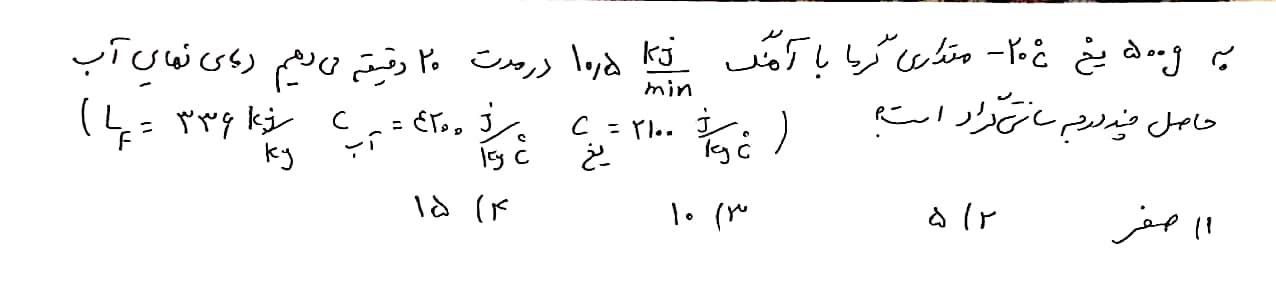 به ۵۰۰g یخ ۲۰°C- مقداری گرما با آهنگ ۱۰,۵ kJ/min در مدت ۲۰ دقیقه می دهیم دمای نهایی آب
حاصل چند درجه سانتی گراد است؟ (L_F = ۳۳۶ kJ/kg C آب = ۴۲۰۰ J/kg°C C یخ = ۲۱۰۰ J/kg°C)
۱) صفر ۲) ۵ ۳) ۱۰ ۴) ۱۵